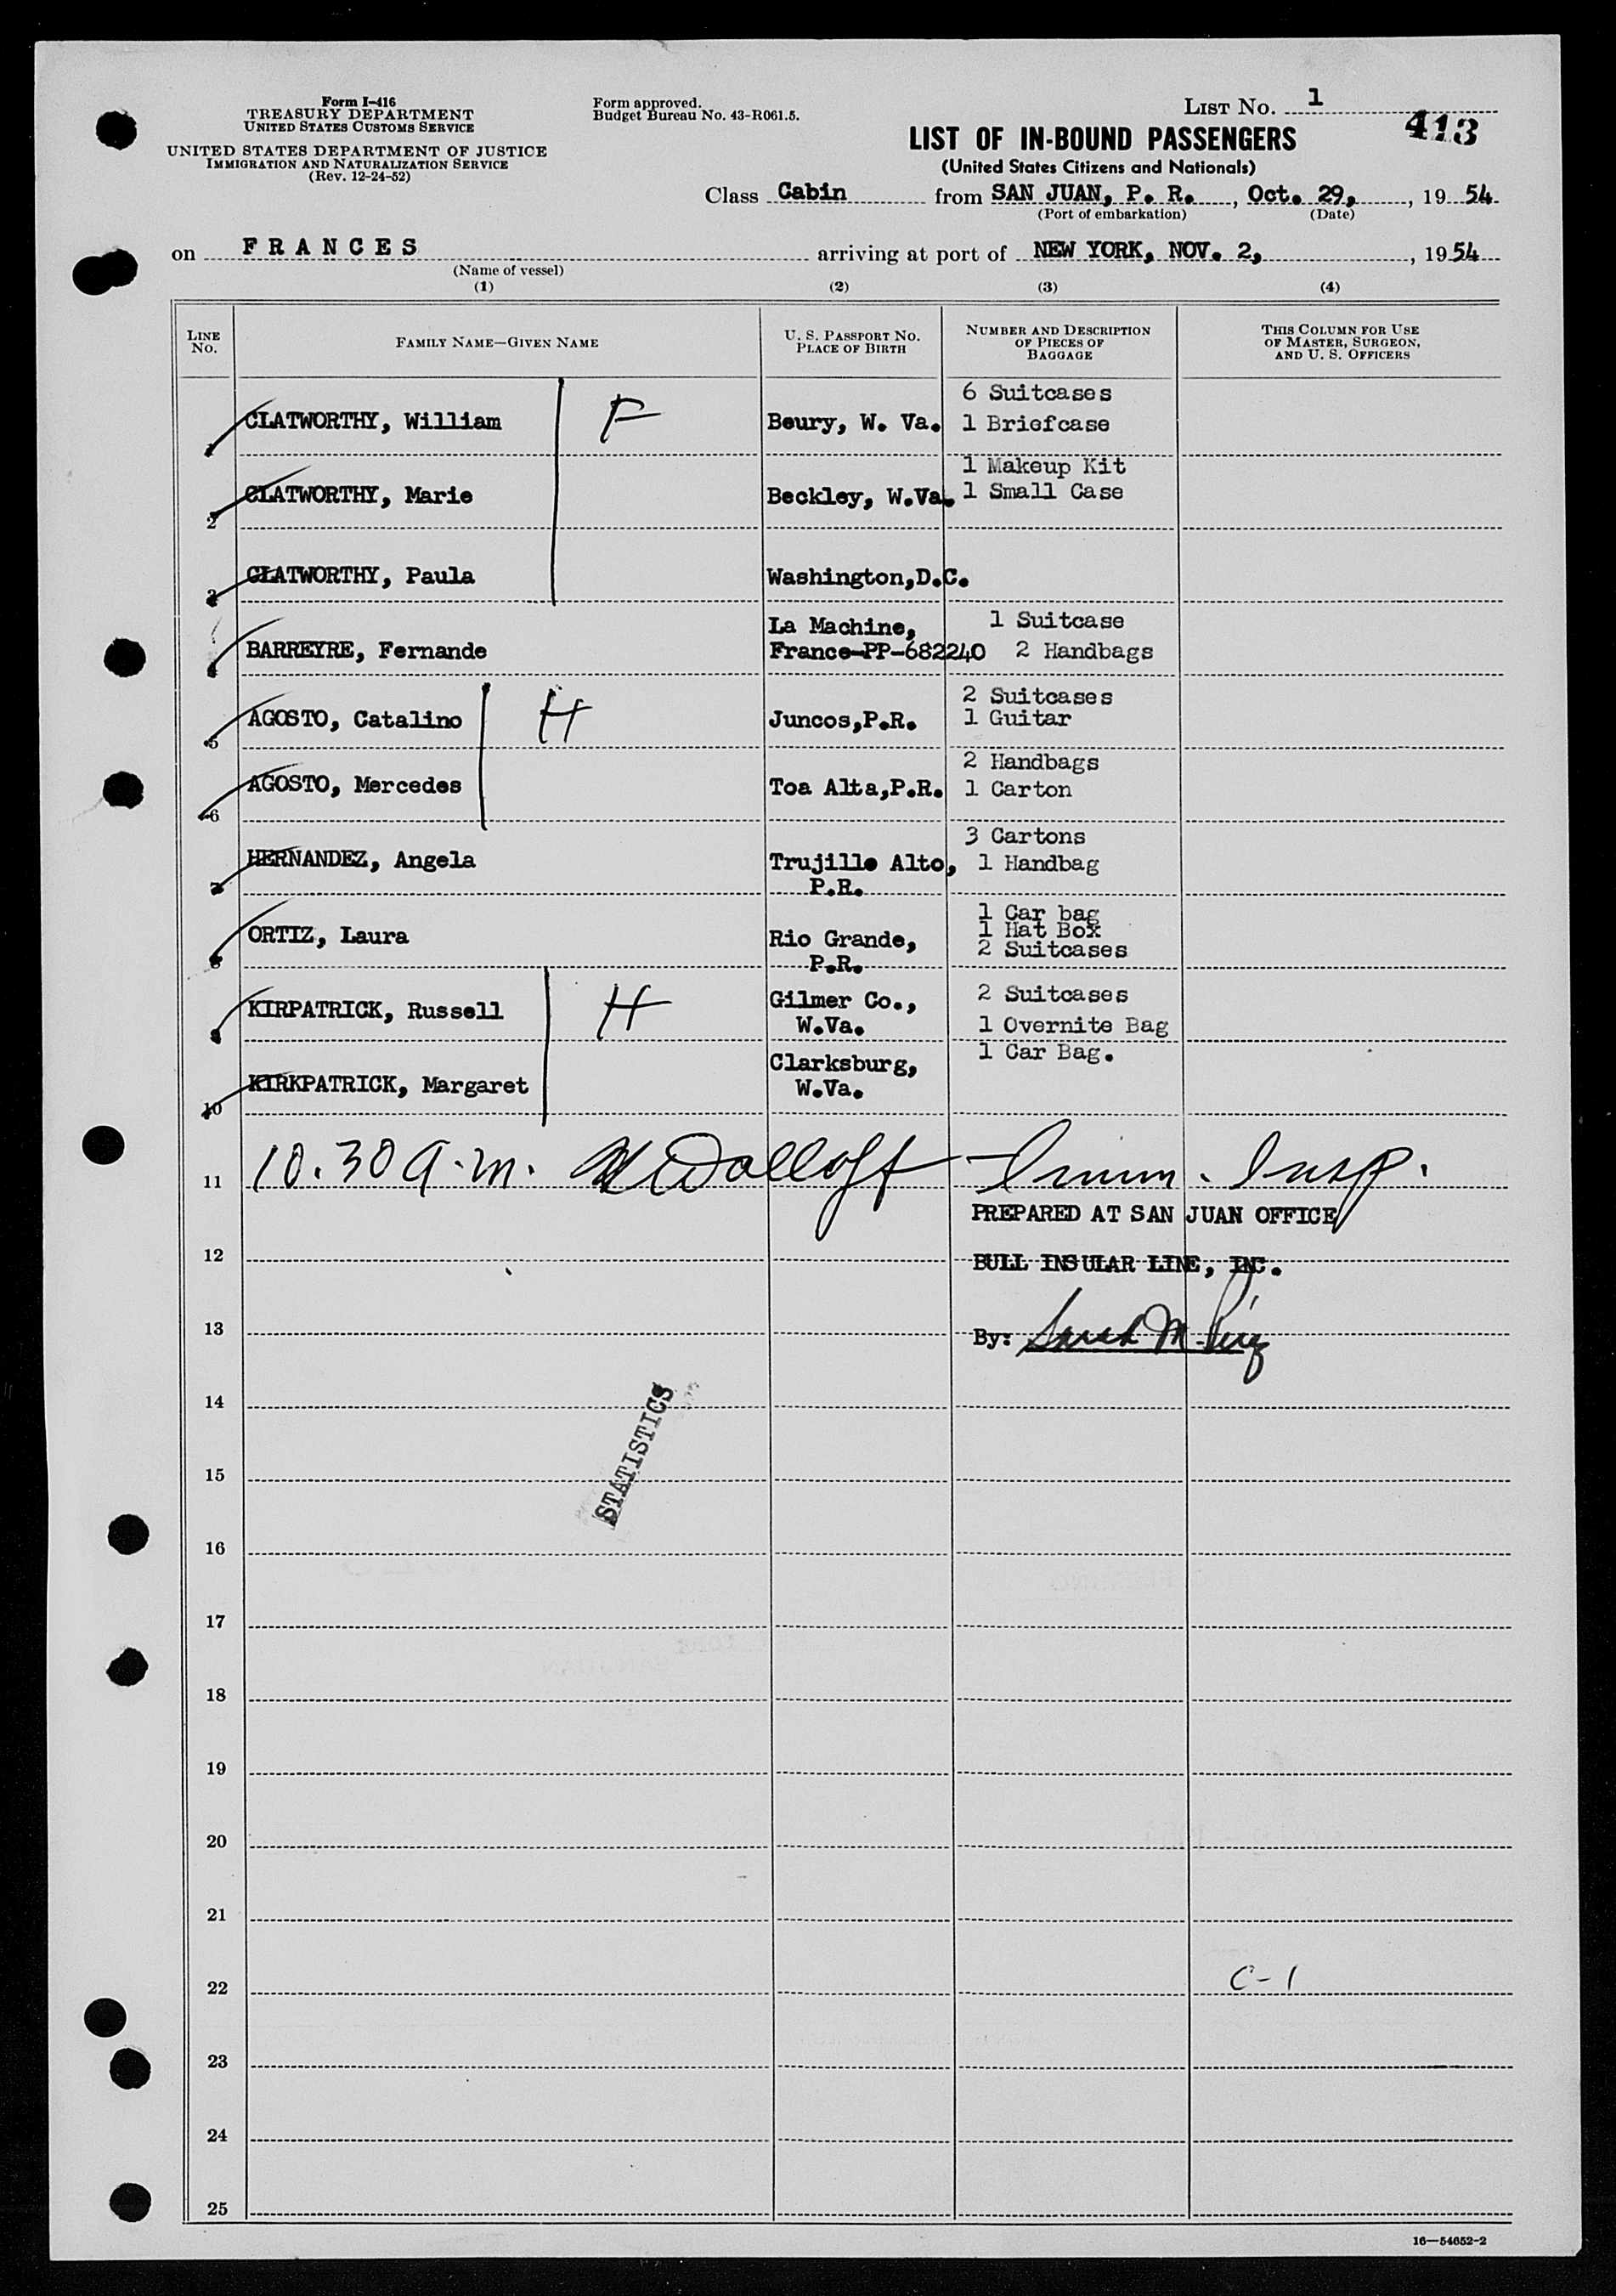 Form I-416
TREASURY DEPARTMENT
UNITED STATES CUSTOMS SERVICE
UNITED STATES DEPARTMENT OF JUSTICE
IMMIGRATION AND NATURALIZATION SERVICE
(Rev. 12-24-52)
Form approved.
Budget Bureau No. 43-R061.5.
LIST NO. 1
413
LIST OF IN-BOUND PASSENGERS
(United States Citizens and Nationals)
Class Cabin from SAN JUAN, P. R., Oct. 29, 1954
(Port of embarkation) (Date)
on FRANCES arriving at port of NEW YORK, NOV. 2, 1954
(Name of vessel)
(1) (2) (3) (4)
LINE NO. FAMILY NAME—GIVEN NAME U. S. PASSPORT NO. PLACE OF BIRTH NUMBER AND DESCRIPTION OF PIECES OF BAGGAGE THIS COLUMN FOR USE OF MASTER, SURGEON, AND U. S. OFFICERS
6 Suitcases
1 CLATWORTHY, William F Beury, W. Va. 1 Briefcase
1 Makeup Kit
2 CLATWORTHY, Marie Beckley, W.Va. 1 Small Case
3 CLATWORTHY, Paula Washington,D.C.
La Machine, 1 Suitcase
4 BARREYRE, Fernande France-PP-682240 2 Handbags
2 Suitcases
5 AGOSTO, Catalino H Juncos,P.R. 1 Guitar
2 Handbags
6 AGOSTO, Mercedes Toa Alta,P.R. 1 Carton
3 Cartons
7 HERNANDEZ, Angela Trujillo Alto, 1 Handbag
P.R.
1 Car bag
1 Hat Box
8 ORTIZ, Laura Rio Grande, 2 Suitcases
P.R.
9 KIRPATRICK, Russell H Gilmer Co., 2 Suitcases
W.Va. 1 Overnite Bag
1 Car Bag.
10 KIRKPATRICK, Margaret Clarksburg,
W.Va.
11 10.30 a.m. Imm. Insp.
PREPARED AT SAN JUAN OFFICE
12 BULL INSULAR LINE, INC.
13 By: Sarah M.
14
STATISTICS
15
16
17
18
19
20
21
22 C-1
23
24
25
16—54652-2